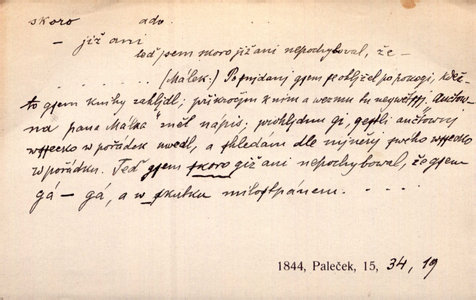 skoro adv.
— již ani
teď jsem skoro již ani nepochyboval, že —
(Málek.) Po snjdanj gsem se ohljžel po pokogi, když
to gsem knihy zahljdl; přikročjm k njm a wezmu tu
na pana Málka" měl napis; prohljdnu gi, gestli
wssecko w pořádek uwedl, a shledám dle mjněnj swého wssecko
w pořádku. Teď gsem skoro giž ani nepochybowal, že gsem
gá — gá, a w skutku milostpánem. . . . .
1844, Paleček, 15, 34, 19